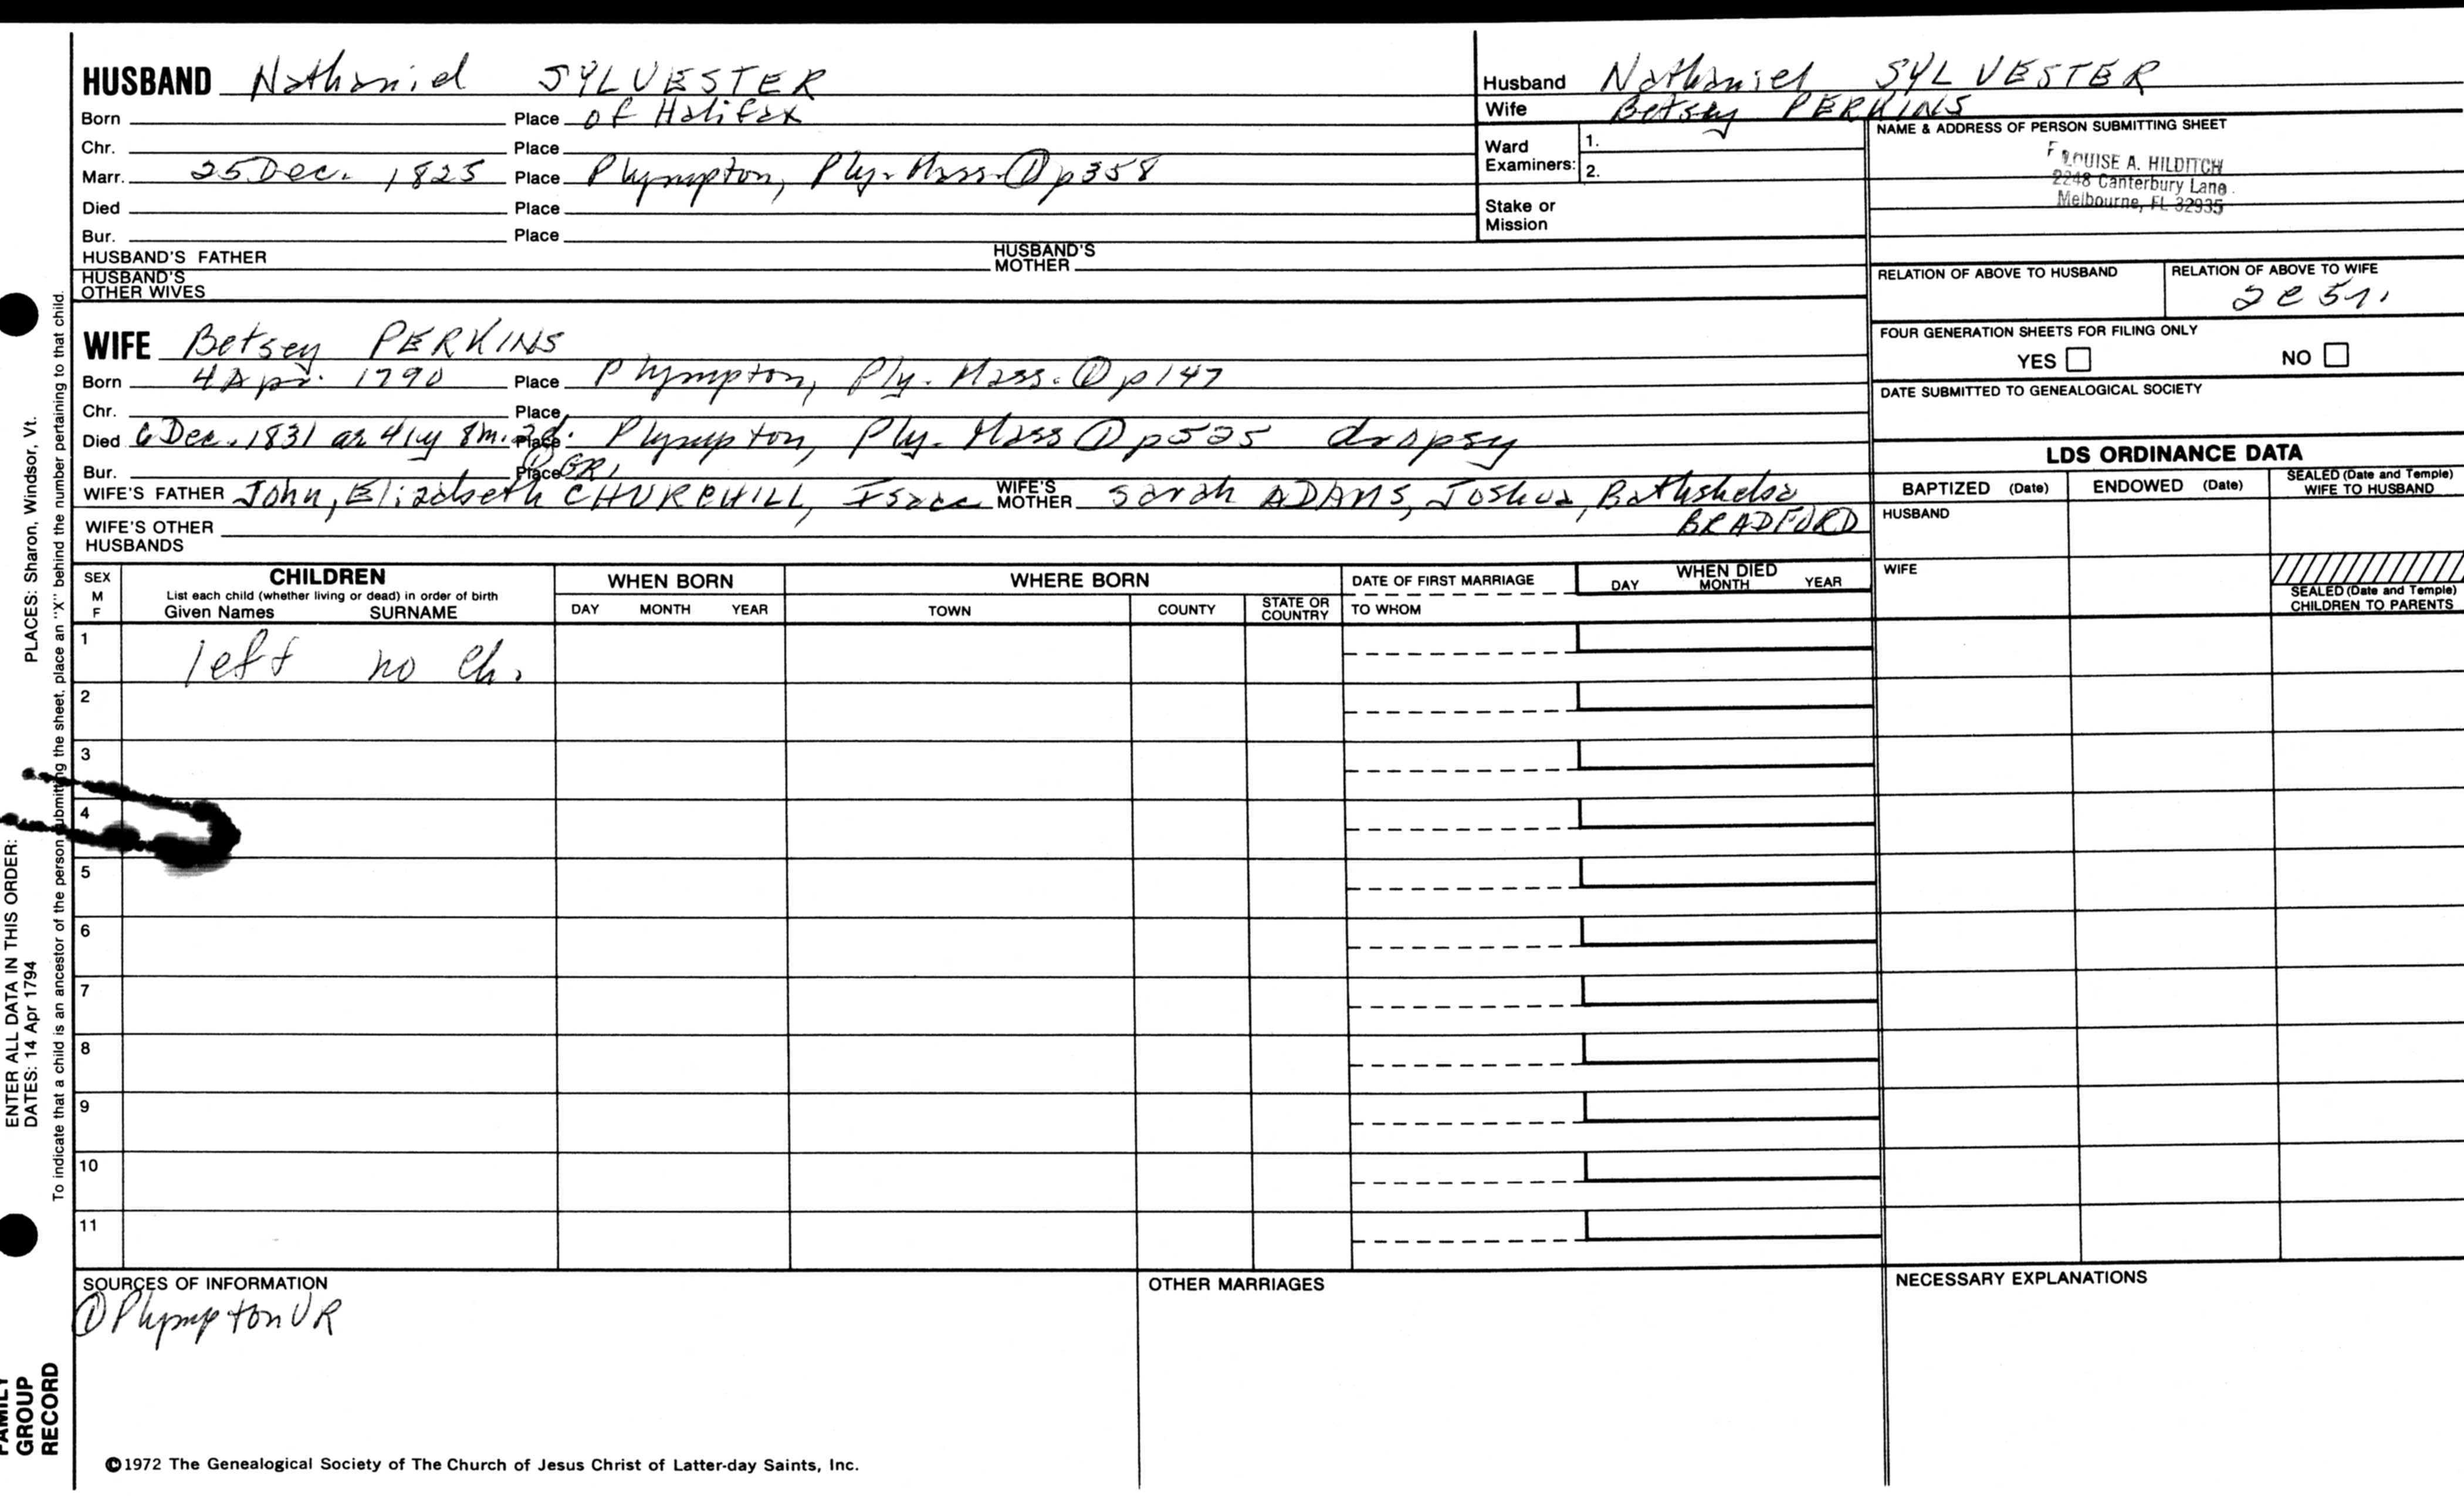 HUSBAND Nathaniel SYLVESTER
Born Place of Halifax
Chr. Place
Marr. 25 Dec. 1825 Place Plympton, Ply. Mass. ① p358
Died Place
Bur. Place
HUSBAND'S FATHER HUSBAND'S MOTHER
HUSBAND'S OTHER WIVES
Husband Nathaniel SYLVESTER
Wife Betsey PERKINS
Ward Examiners: 1.
2.
Stake or Mission
NAME & ADDRESS OF PERSON SUBMITTING SHEET
LOUISE A. HILDITCH
2248 Canterbury Lane
Melbourne, FL 32935
RELATION OF ABOVE TO HUSBAND RELATION OF ABOVE TO WIFE
FOUR GENERATION SHEETS FOR FILING ONLY
YES NO
DATE SUBMITTED TO GENEALOGICAL SOCIETY
WIFE Betsey PERKINS
Born 4 Apr. 1790 Place Plympton, Ply. Mass. ① p147
Chr. Place
Died 6 Dec. 1831 ae 41y 8m. 2d. Place Plympton, Ply. Mass ① p525 dropsy
Bur. Place GR1
WIFE'S FATHER John, Elizabeth CHURCHILL, Isaac WIFE'S MOTHER Sarah ADAMS, Joshua, Bathsheba
BRADFORD
WIFE'S OTHER HUSBANDS
LDS ORDINANCE DATA
BAPTIZED (Date) ENDOWED (Date) SEALED (Date and Temple) WIFE TO HUSBAND
HUSBAND
WIFE
SEALED (Date and Temple) CHILDREN TO PARENTS
SEX M F
CHILDREN
List each child (whether living or dead) in order of birth
Given Names SURNAME
WHEN BORN
DAY MONTH YEAR
WHERE BORN
TOWN COUNTY STATE OR COUNTRY
DATE OF FIRST MARRIAGE
TO WHOM
WHEN DIED
DAY MONTH YEAR
1 left no ch.
2
3
4
5
6
7
8
9
10
11
SOURCES OF INFORMATION
① Plympton VR
OTHER MARRIAGES
NECESSARY EXPLANATIONS
©1972 The Genealogical Society of The Church of Jesus Christ of Latter-day Saints, Inc.
PLACES: Sharon, Windsor, Vt.
ENTER ALL DATA IN THIS ORDER:
DATES: 14 Apr 1794
To indicate that a child is an ancestor of the person submitting the sheet, place an "X" behind the number pertaining to that child.
FAMILY
GROUP
RECORD